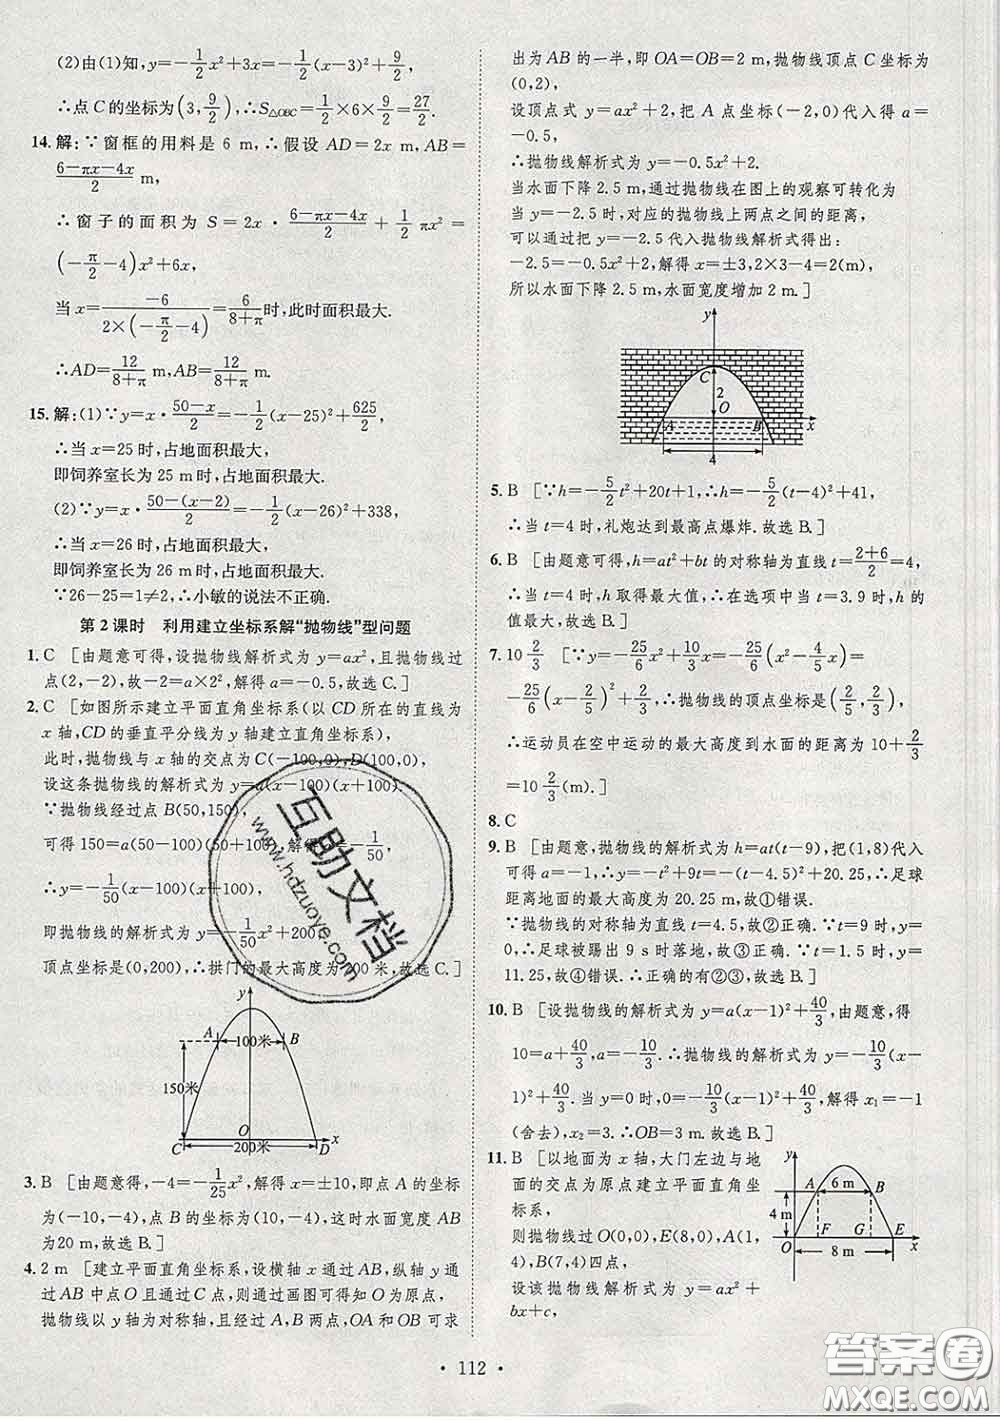 (2)由(1)知,y=-\frac{1}{2}x²+3x=-\frac{1}{2}(x-3)²+\frac{9}{2},
∴点C的坐标为(3,\frac{9}{2}),∴S△OBC=\frac{1}{2}×6×\frac{9}{2}=\frac{27}{2}.
14.解:∵窗框的用料是 6 m,∴假设 AD=2x m,AB=
\frac{6-πx-4x}{2} m,
∴窗子的面积为 S=2x·\frac{6-πx-4x}{2}+\frac{1}{2}πx²=
(-\frac{π}{2}-4)x²+6x,
当 x=\frac{-6}{2×(-\frac{π}{2}-4)}=\frac{6}{8+π}时,此时面积最大.
∴AD=\frac{12}{8+π} m=\frac{12}{8+π} m.
15.解:(1)∵y=x·\frac{50-x}{2}=-\frac{1}{2}(x-25)²+\frac{625}{2}
∴当 x=25时,占地面积最大,
即饲养室长为 25 m时,占地面积最大.
(2)∵y=x·\frac{50-(x-2)}{2}=-\frac{1}{2}(x-26)²+338,
∴当 x=26时,占地面积最大,
即饲养室长为 26 m时,占地面积最大.
∵26-25=1≠2,∴小敏的说法不正确.
第2课时 利用建立坐标系解“抛物线”型问题
1. C [由题意可得,设抛物线解析式为y=ax²,且抛物线过
点(2,-2),故-2=a×2²,解得a=-0.5,故选C.]
2. C [如图所示建立平面直角坐标系(以CD所在的直线为
x轴,CD的垂直平分线为y轴建立直角坐标系),
此时,抛物线与x轴的交点为C(-100,0),D(100,0),
设这条抛物线的解析式为y=a(x-100)(x+100).
∵抛物线经过点B(50,150),
可得 150=a(50-100)(50+100).解得a=-\frac{1}{50},
∴y=-\frac{1}{50}(x-100)(x+100),
即抛物线的解析式为y=-\frac{1}{50}x²+200,
顶点坐标是(0,200),∴拱门的最大高度为200米,故选C.]
y
A 100米 B
150米
C O 200米 D x
3. B [由题意得,-4=-\frac{1}{25}x²,解得x=±10,即点A的坐标
为(-10,-4),点B的坐标为(10,-4),这时水面宽度AB
为20 m,故选B.]
4. 2 m [建立平面直角坐标系,设横轴x通过AB,纵轴y通
过AB中点O且通过C点,则通过画图可得知O为原点,
抛物线以y轴为对称轴,且经过A,B两点,OA和OB可求
出为AB的一半,即OA=OB=2 m,抛物线顶点C坐标为
(0,2),
设顶点式y=ax²+2,把A点坐标(-2,0)代入得a=
-0.5,
∴抛物线解析式为y=-0.5x²+2.
当水面下降2.5 m,通过抛物线在图上的观察可转化为
当y=-2.5时,对应的抛物线上两点之间的距离,
可以通过把y=-2.5代入抛物线解析式得出:
-2.5=-0.5x²+2,解得x=±3,2×3-4=2(m),
所以水面下降2.5 m,水面宽度增加2 m.]
y
C
2
O
A B x
4
5. B [∵h=-\frac{5}{2}t²+20t+1,∴h=-\frac{5}{2}(t-4)²+41,
∴当t=4时,礼炮达到最高点爆炸.故选B.]
6. B [由题意可得,h=at²+bt的对称轴为直线t=\frac{2+6}{2}=4,
故当t=4时,h取得最大值,∴在选项中当t=3.9时,h
最大,故选B.]
7. 10\frac{2}{3} [∵y=-\frac{25}{6}x²+\frac{10}{3}x=-\frac{25}{6}(x²-\frac{4}{5}x)=
-\frac{25}{6}(x-\frac{2}{5})²+\frac{2}{3},∴抛物线的顶点坐标是(\frac{2}{5},\frac{2}{3}),
∴运动员在空中运动的最大高度到水面的距离为10+\frac{2}{3}
=10\frac{2}{3}(m).]
8. C
9. B [由题意,抛物线的解析式为h=at(t-9),把(1,8)代入
可得a=-1,∴h=-t²+9t=-(t-4.5)²+20.25,∴足球
距离地面的最大高度为20.25 m,故①错误.
∵抛物线的对称轴为直线t=4.5,故②正确.∵t=9时,y=
0,∴足球被踢出9 s时落地,故③正确.∵t=1.5时,y=
11.25,故④错误.∴正确的有②③,故选B.]
10. B [设抛物线的解析式为y=a(x-1)²+\frac{40}{3},由题意,得
10=a+\frac{40}{3},a=-\frac{10}{3}.∴抛物线的解析式为y=-\frac{10}{3}(x-
1)²+\frac{40}{3}.当y=0时,0=-\frac{10}{3}(x-1)²+\frac{40}{3},解得x₁=-1
(舍去),x₂=3.∴OB=3 m.故选B.]
11. B [以地面为x轴,大门左边与地
面的交点为原点建立平面直角坐
标系,
则抛物线过O(0,0),E(8,0),A(1,
4),B(7,4)四点,
设该抛物线解析式为y=ax²+
bx+c,
y
A 6 m B
4 m
O F G E x
8 m
互助文档
www.hdzuoye.com
·112·
答案圈
MXQE.COM